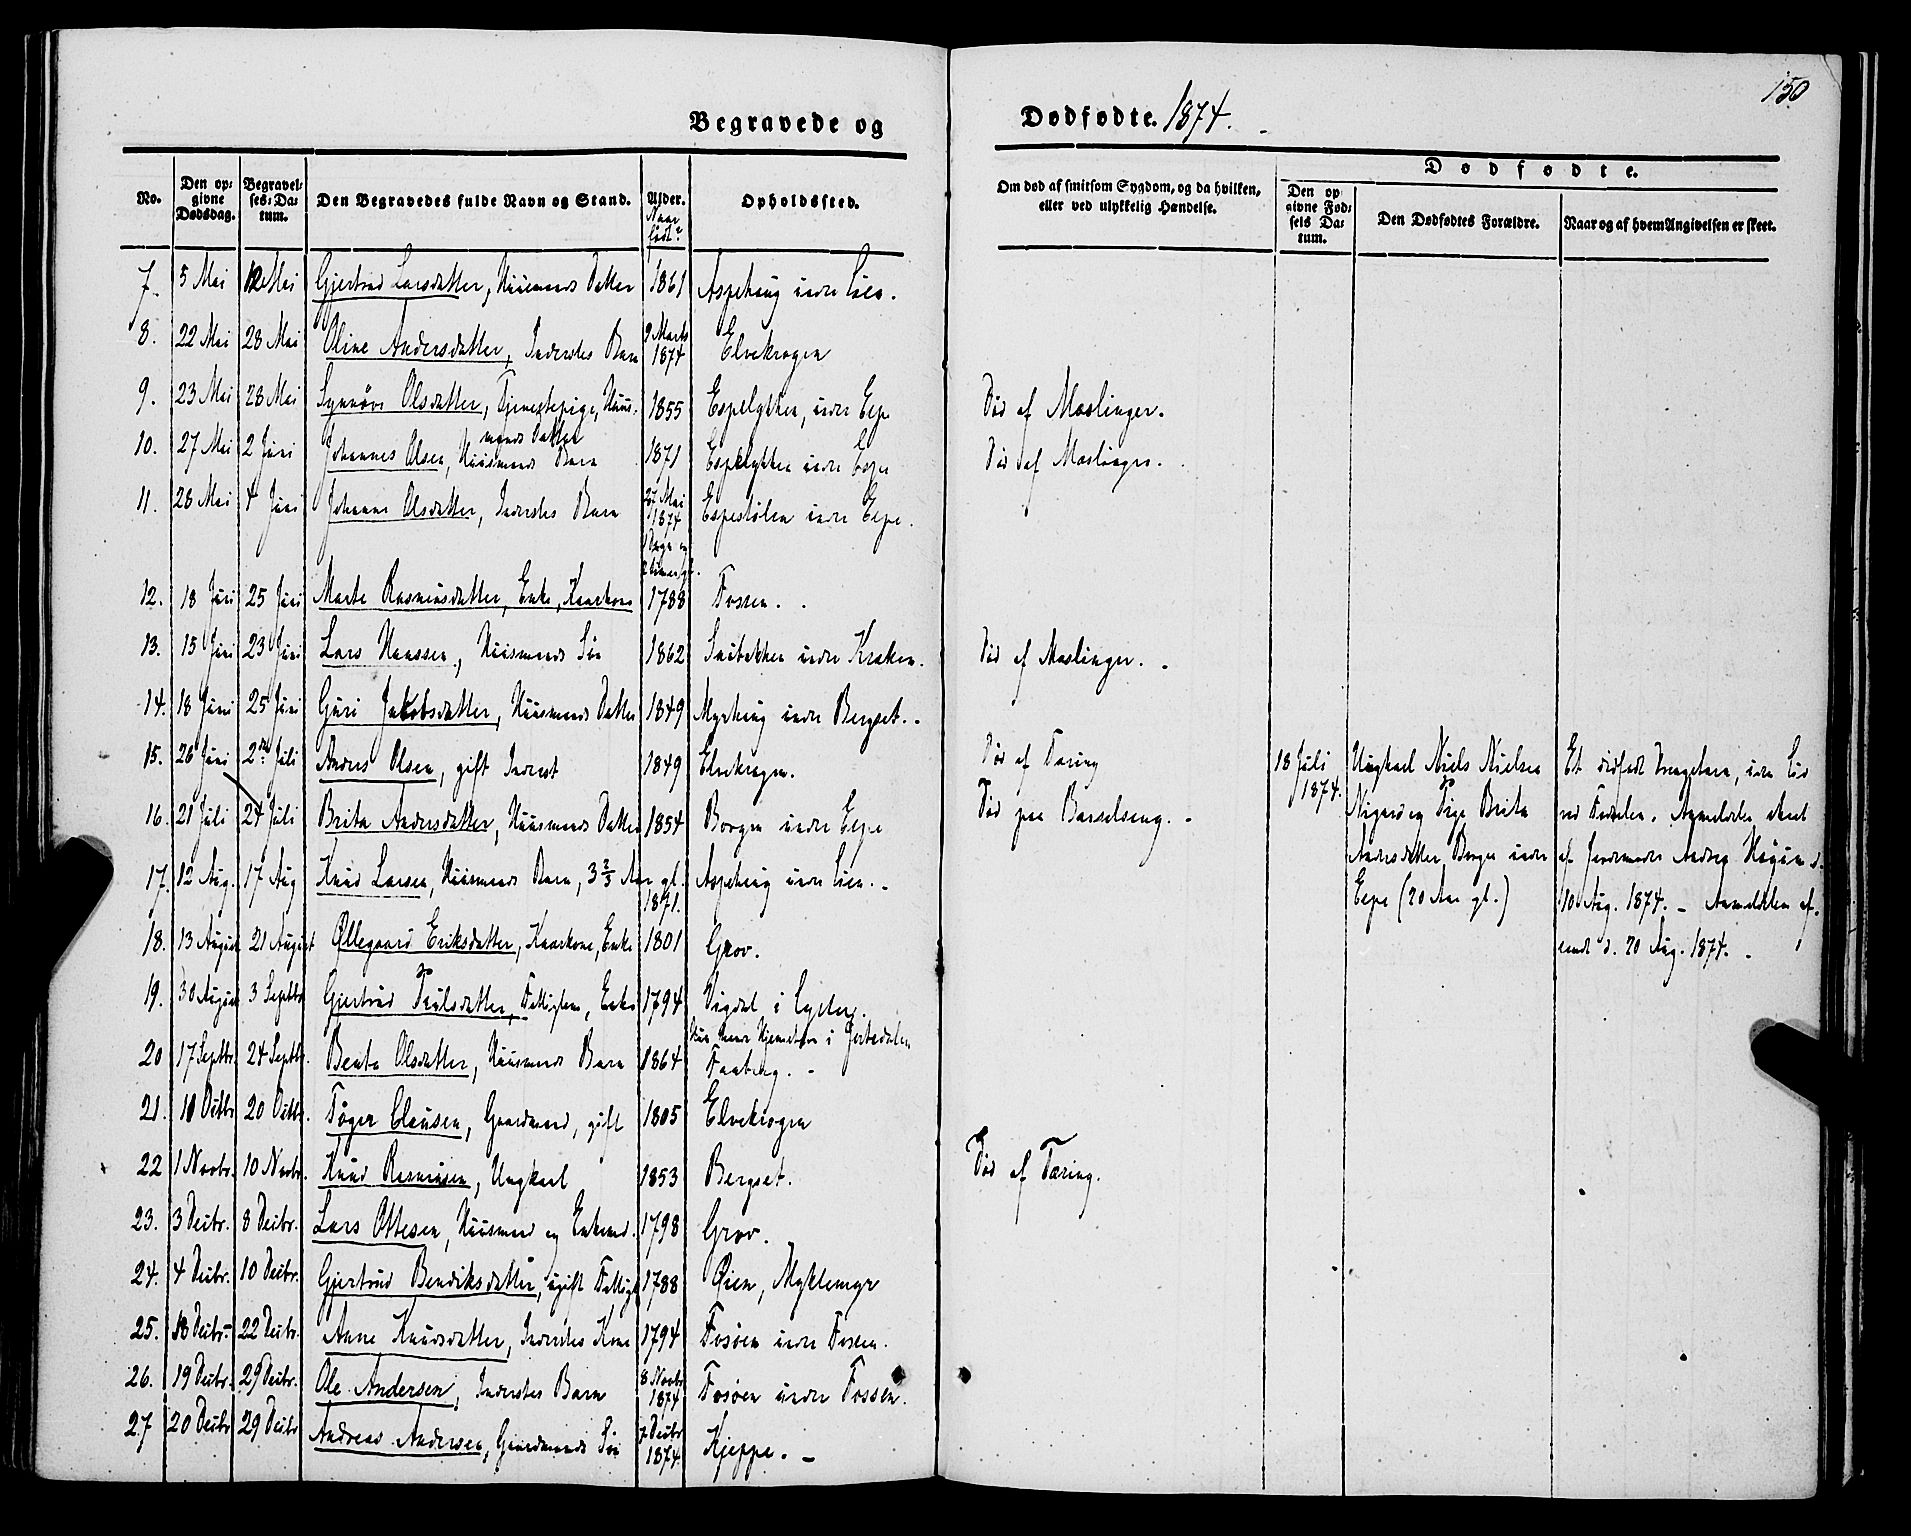 150
Begravede og Dødfødte. 1874.
No. Den opgivne Dødsdag. Begravelses-Datum. Den Begravedes fulde Navn og Stand. Alder. Naar født? Opholdssted.
Om død af smitsom Sygdom, og da hvilken, eller ved ulykkelig Hændelse.
Dødfødte.
Den opgivne Fødsels Datum. Den Dødfødtes Forældre. Naar og af hvem Angivelsen er skeet.
7. 5 Mai 12 Mai Gjertrud Larsdatter, Huusmands Datter 1861 Aspehaug under Lien.
8. 22 Mai 28 Mai Oline Andersdatter, Inderstes Barn 9 Marts 1874 Elvekrogen
9. 23 Mai 28 Mai Synnøve Olsdatter, Tjenestepige, Huusmands Datter 1855 Espelykken, under Espe Død af Mæslinger.
10. 27 Mai 2 Juni Johannes Olsen, Huusmands Barn 1871 Espelykken under Espe Død af Mæslinger.
11. 28 Mai 4 Juni Johanne Olsdatter, Inderstes Barn 27 Mai 1874 1 Dags og 2 timer gl. Espestølen under Espe.
12. 18 Juni 25 Juni Marte Rasmusdatter, Enke, Kaarkone 1788 Fossen.
13. 15 Juni 23 Juni Lars Hanssen, Huusmands Søn 1862 under Kræken. Død af Mæslinger.
14. 18 Juni 25 Juni Guri Jakobsdatter, Huusmands Datter 1849 Myrhaug under Bergset.
15. 26 Juni 2den Juli Anders Olsen, gift Inderst 1849 Elvekrogen. Død af Tæring
16. 21 Juli 24 Juli Brita Andersdatter, Huusmands Datter 1854 Borgen under Espe Død paa Barselseng.
17. 12 Aug. 17 Aug Knud Larsen, Huusmands Barn, 3 2/3 Aar gl. 1871. Aspehaug under Lien.
18. 13 August 21 August Øllegaard Eriksdatter, Kaarkone, Enke 1801 Grov.
19. 30 August 3 Septbr Gjertrud Poulsdatter, Fattiglem, Enke 1794 Vigdal i Lyster. Hun havde Hjemstavn i Jostedalen
20 17 Septbr. 24 Septbr. Beate Olsdatter, Huusmands Barn 1864 Faaberg.
21. 10 Octbr 20 Octbr. Tøger Clausen, Gaardmand, gift 1805 Elvekrogen
22 1 Novbr. 10 Novbr. Knud Rasmusen, Ungkarl 1853 Bergset. Død af Tæring.
23. 3 Decbr. 8 Decbr. Lars Ottesen, Huusmand og Enkemd. 1798 Grov.
24. 4 Decbr. 10 Decbr. Gjertrud Bendiksdatter, ugift Fattigl 1788 Øien, Myklemyr
25. 18 Decbr. 22 Decbr. Anne Knudsdatter, Inderstes Kone 1794 Fosøen under Fossen.
26. 19 Decbr. 29 Decbr. Ole Andersen, Inderstes Barn 8 Novbr 1874 Fosøen under Fossen.
27 20 Decbr 29 Decbr Andreas Andersen, Gaardmands Søn 7 Decbr 1874 Kjeppe.
18 Juli 1874.
Ungkarl Niels Nielsen
Nigard og Pige Brita
Andersdatter Borgen under
Espe (20 Aar gl.)
Et dødfødt Drengebarn, uden Liv
ved Fødselen. Anmeldelse skeet
af Jordemoder
10 Aug. 1874. – Anmeldelse af-
sendt d. 20 Aug. 1874.